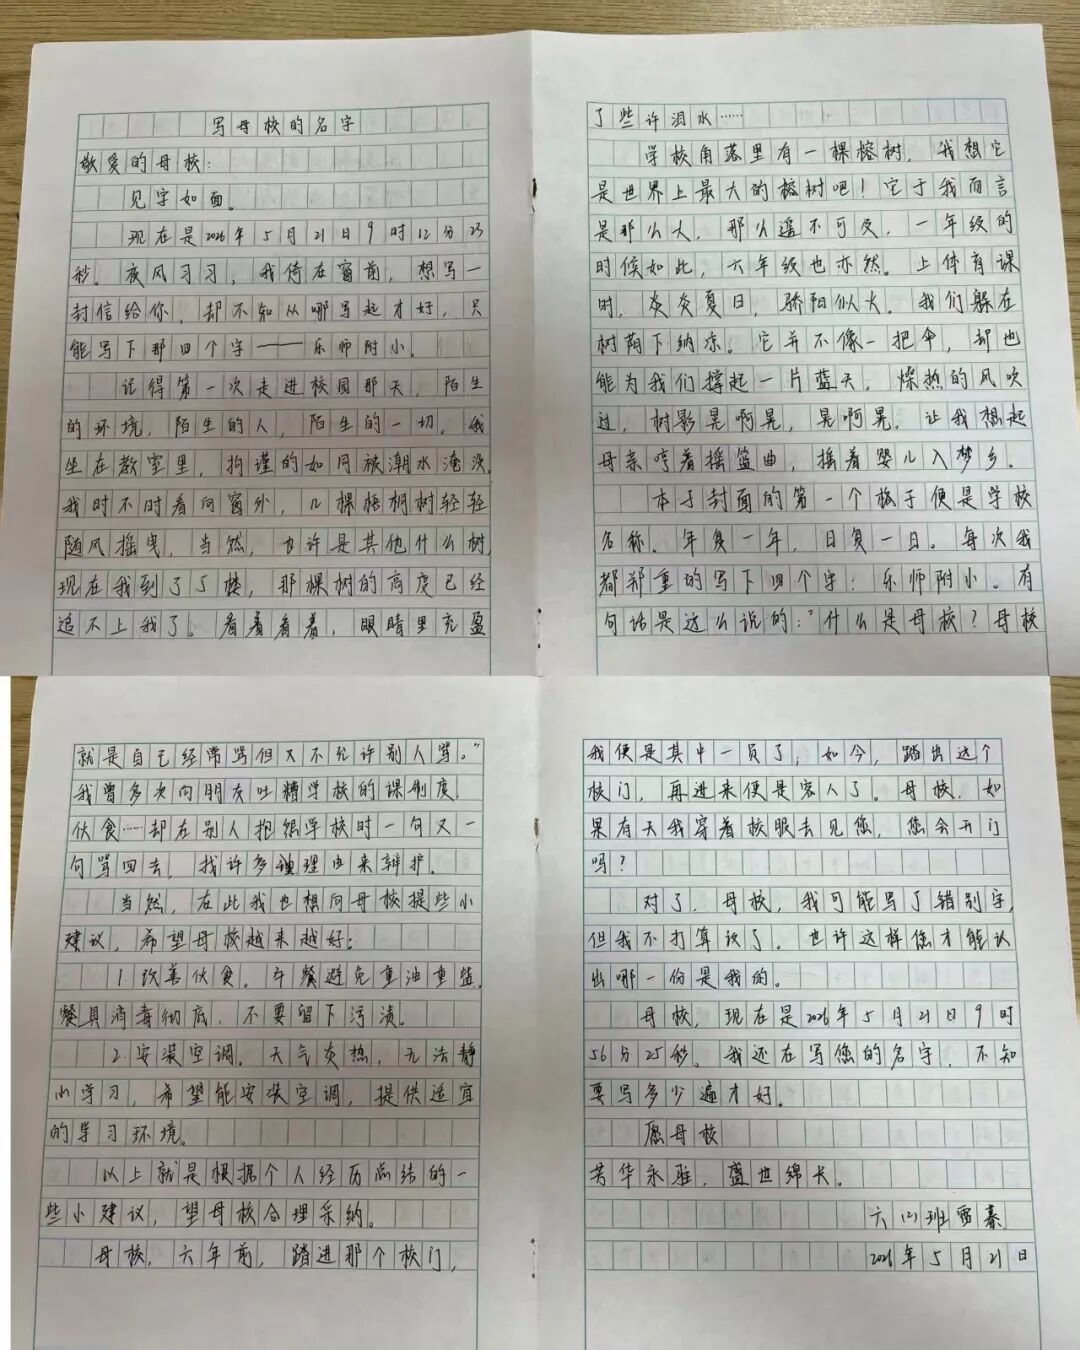 写母校的名字
敬爱的母校：
见字如面。
现在是2026年5月21日9时12分23
秒。夜风习习，我倚在窗前，想写一
封信给你，却不知从哪写起才好，只
能写下那四个字——乐师附小。
记得第一次走进校园那天，陌生
的环境，陌生的人，陌生的一切。我
坐在教室里，拘谨的如同被潮水淹没。
我时不时看向窗外，几棵梧桐树轻轻
随风摇曳，当然，也许是其他什么树，
现在我到了5楼，那棵树的高度已经
追不上我了。看着看着，眼睛里充盈
了些许泪水……
学校角落里有一棵榕树，我想它
是世界上最大的榕树吧！它于我而言
是那么大，那么遥不可及，一年级的
时候如此，六年级也亦然。上体育课
时，炎炎夏日，骄阳似火。我们躲在
树荫下纳凉。它并不像一把伞，却也
能为我们撑起一片蓝天，燥热的风吹
过，树影晃啊晃，晃啊晃，让我想起
母亲哼着摇篮曲，摇着婴儿入梦乡。
本子封面的第一个格子便是学校
名称，年复一年，日复一日。每次我
都郑重的写下四个字：乐师附小。有
句话是这么说的：“什么是母校？母校
就是自己经常骂但又不允许别人骂。”
我曾多次向朋友吐糟学校的课制度，
伙食……却在别人抱怨学校时一句又一
句骂回去，找许多理由来辩护。
当然，在此我也想向母校提些小
建议，希望母校越来越好：
1.改善伙食。午餐避免重油重盐，
餐具消毒彻底，不要留下污渍。
2.安装空调。天气炎热，无法静
心学习，希望能安装空调，提供适宜
的学习环境。
以上就是根据个人经历总结的一
些小建议，望母校合理采纳。
母校，六年前，踏进那个校门，
我便是其中一员了，如今，踏出这个
校门，再进来便是客人了。母校，如
果有天我穿着校服去见您，您会开门
吗？
对了，母校，我可能写了错别字，
但我不打算改了，也许这样您才能认
出哪一份是我的。
母校，现在是2026年5月21日9时
56分25秒。我还在写您的名字，不知
要写多少遍才好。
愿母校
芳华永驻，盛世绵长。
六(2)班雷蓁
2026年5月21日